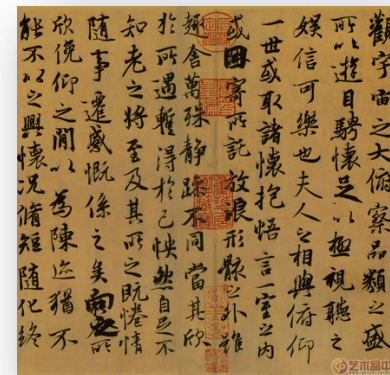 觀宇宙之大俯察品類之盛
所以遊目騁懷足以極視聽之
娛信可樂也夫人之相與俯仰
一世或取諸懷抱悟言一室之內
或因寄所託放浪形骸之外雖
趣舍萬殊靜躁不同當其欣
於所遇暫得於己怏然自足不
知老之將至及其所之既惓情
隨事遷感慨係之矣向之所
欣俛仰之閒以為陳迹猶不
能不以之興懷況脩短隨化終
艺术品中